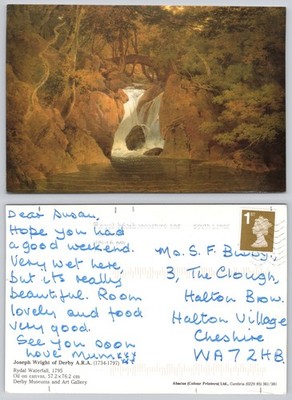 Dear Susan,
Hope you had
a good weekend.
Very wet here,
but its really
beautiful. Room
lovely and food
very good.
See you soon
love Mum xxx
Ms. S. F.
3, The Clough,
Halton Brow.
Halton Village
Cheshire
WA7 2HB
1ST
Joseph Wright of Derby A.R.A. (1734-1797)
Rydal Waterfall, 1795
Oil on canvas, 57.2 × 76.2 cm
Derby Museums and Art Gallery
Abacus (Colour Printers) Ltd., Cumbria